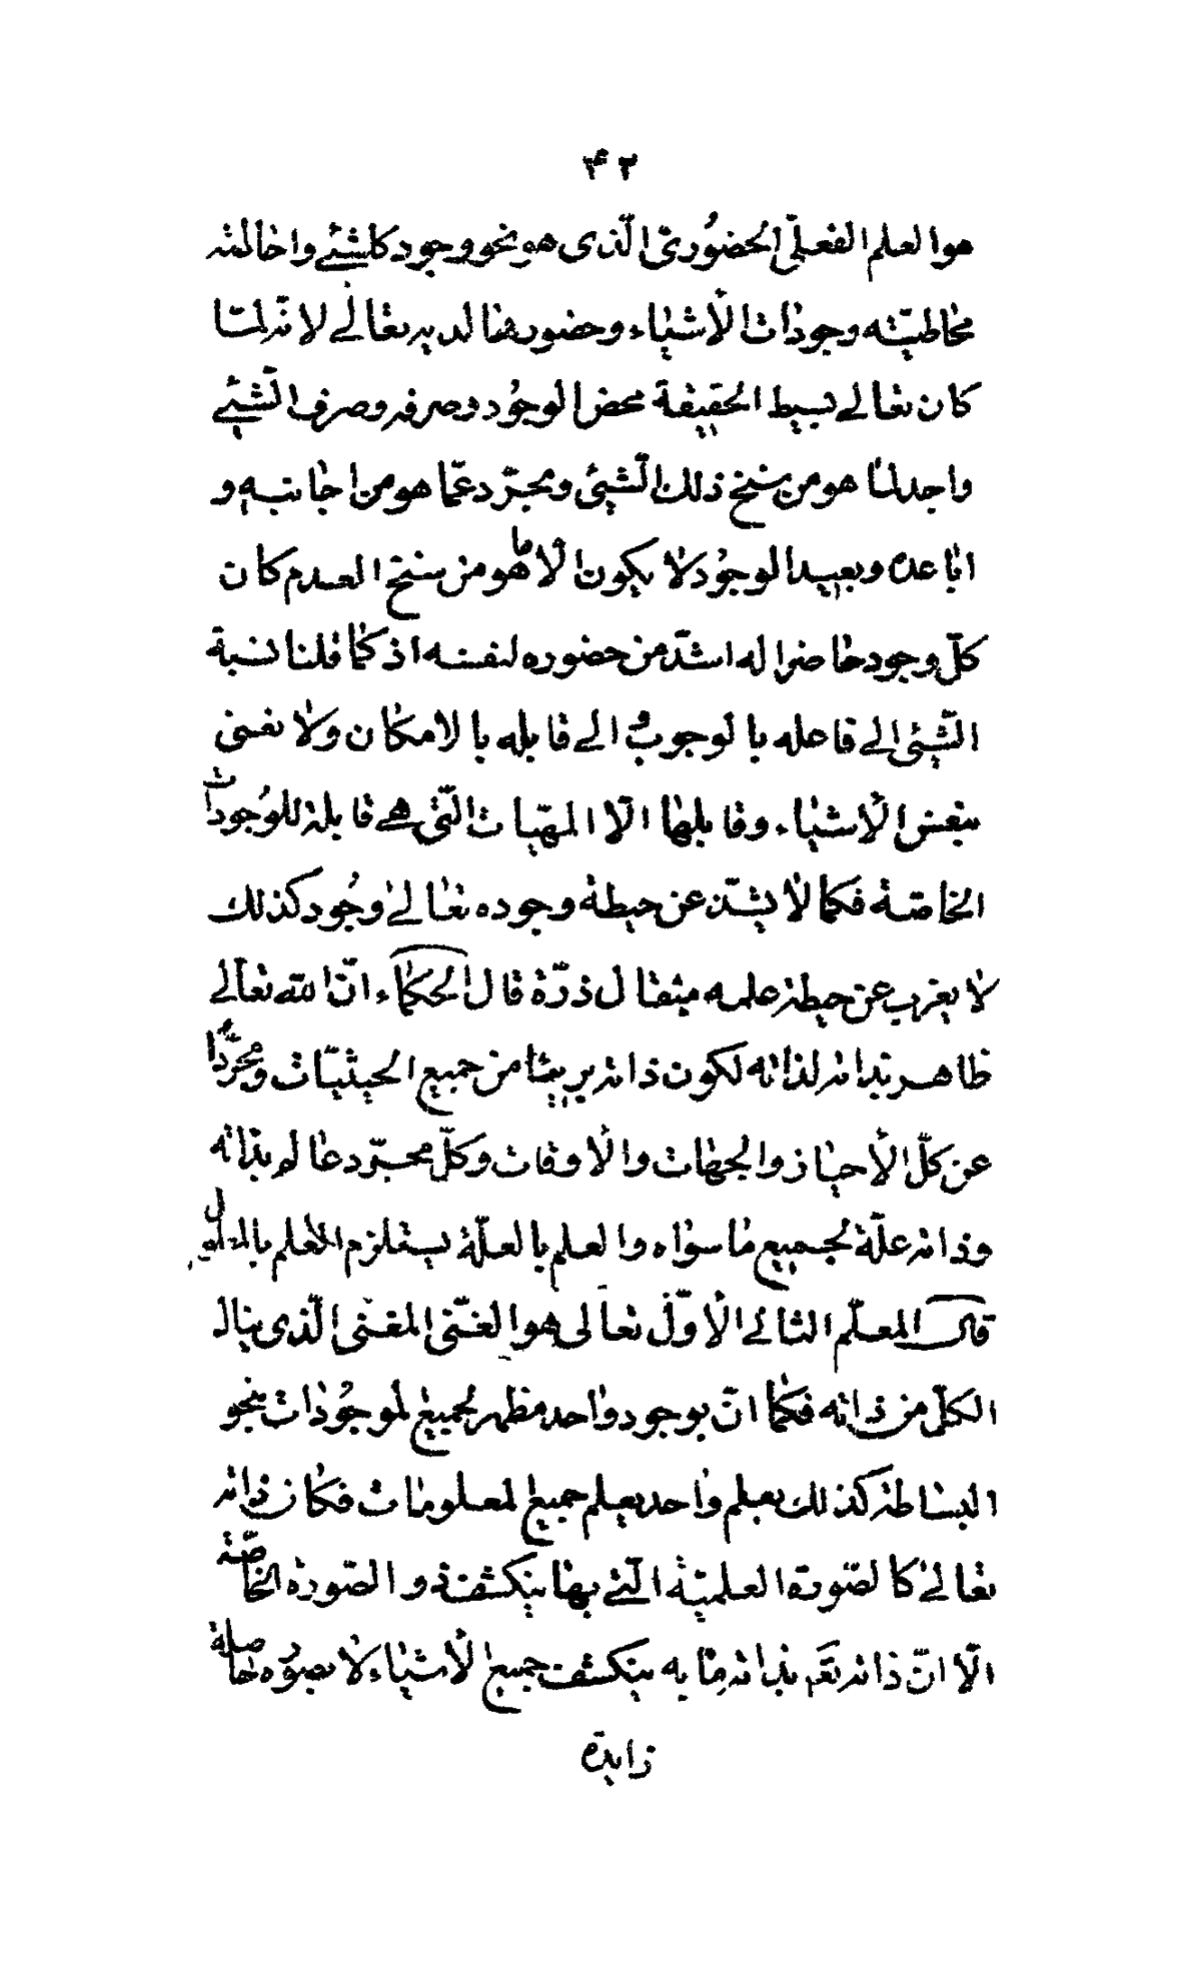 ۴۲
هو العلم الفعلّى الحضُورىّ الّذى هو نحو وجود كلشئے واحالته
محاطيّته وجودات الأشياء وحضورها لديه تعالے لانّه لمّا
كان تعالے بسيط الحقيقة محض الوجُود وصرفه وصرف الشّئے
واجد لما هو من سنخ ذلك الشّيئ ومجرّد عمّا هو من اجانبه و
اباعده وبعيد الوجُود لا يكون الّا ما هو من سنخ العدم كان
كلّ وجود حاضرا له اشدّ من حضوره لنفسه اذ كما قلنا نسبة
الشّيئ الے فاعله بالوجوب والے قابله بالامكان ولا نعنى
بنفس الأشياء وقابلها الّا المهيّات الّتى هے قابلة للوُجودات
الخاصّة فكما لا يشذّ عن حيطة وجوده تعالے وجُود كذلك
لا يعزب عن حيطة علمه مثقال ذرّة قال الحكماء انّ الله تعالے
ظاهر بذاته لذاته لكون ذاته بريئا من جميع الحيثيّات ومجرّدًا
عن كلّ الأحياز والجهات والأوقات وكلّ مجرّد عالم بذاته
وذاته علّة لجميع ما سواه والعلم بالعلّة يستلزم العلم بالمعلول
قال المعلّم الثانے الأوّل تعالى هو الغنّى المغنى الّذى ينال
الكلّ من ذاته فكما انّ بوجود واحد مظهر لجميع الموجُودات بنحو
البساطة كذلك بعلم واحد يعلم جميع المعلومات فكان ذاته
تعالے كالصّورة العلميّة الّتے بها ينكشف ذو الصّورة الخاصّة
الّا انّ ذاته تعَه بذاته ما به ينكشف جميع الأشياء لا بصوره حاصلة
زايدة